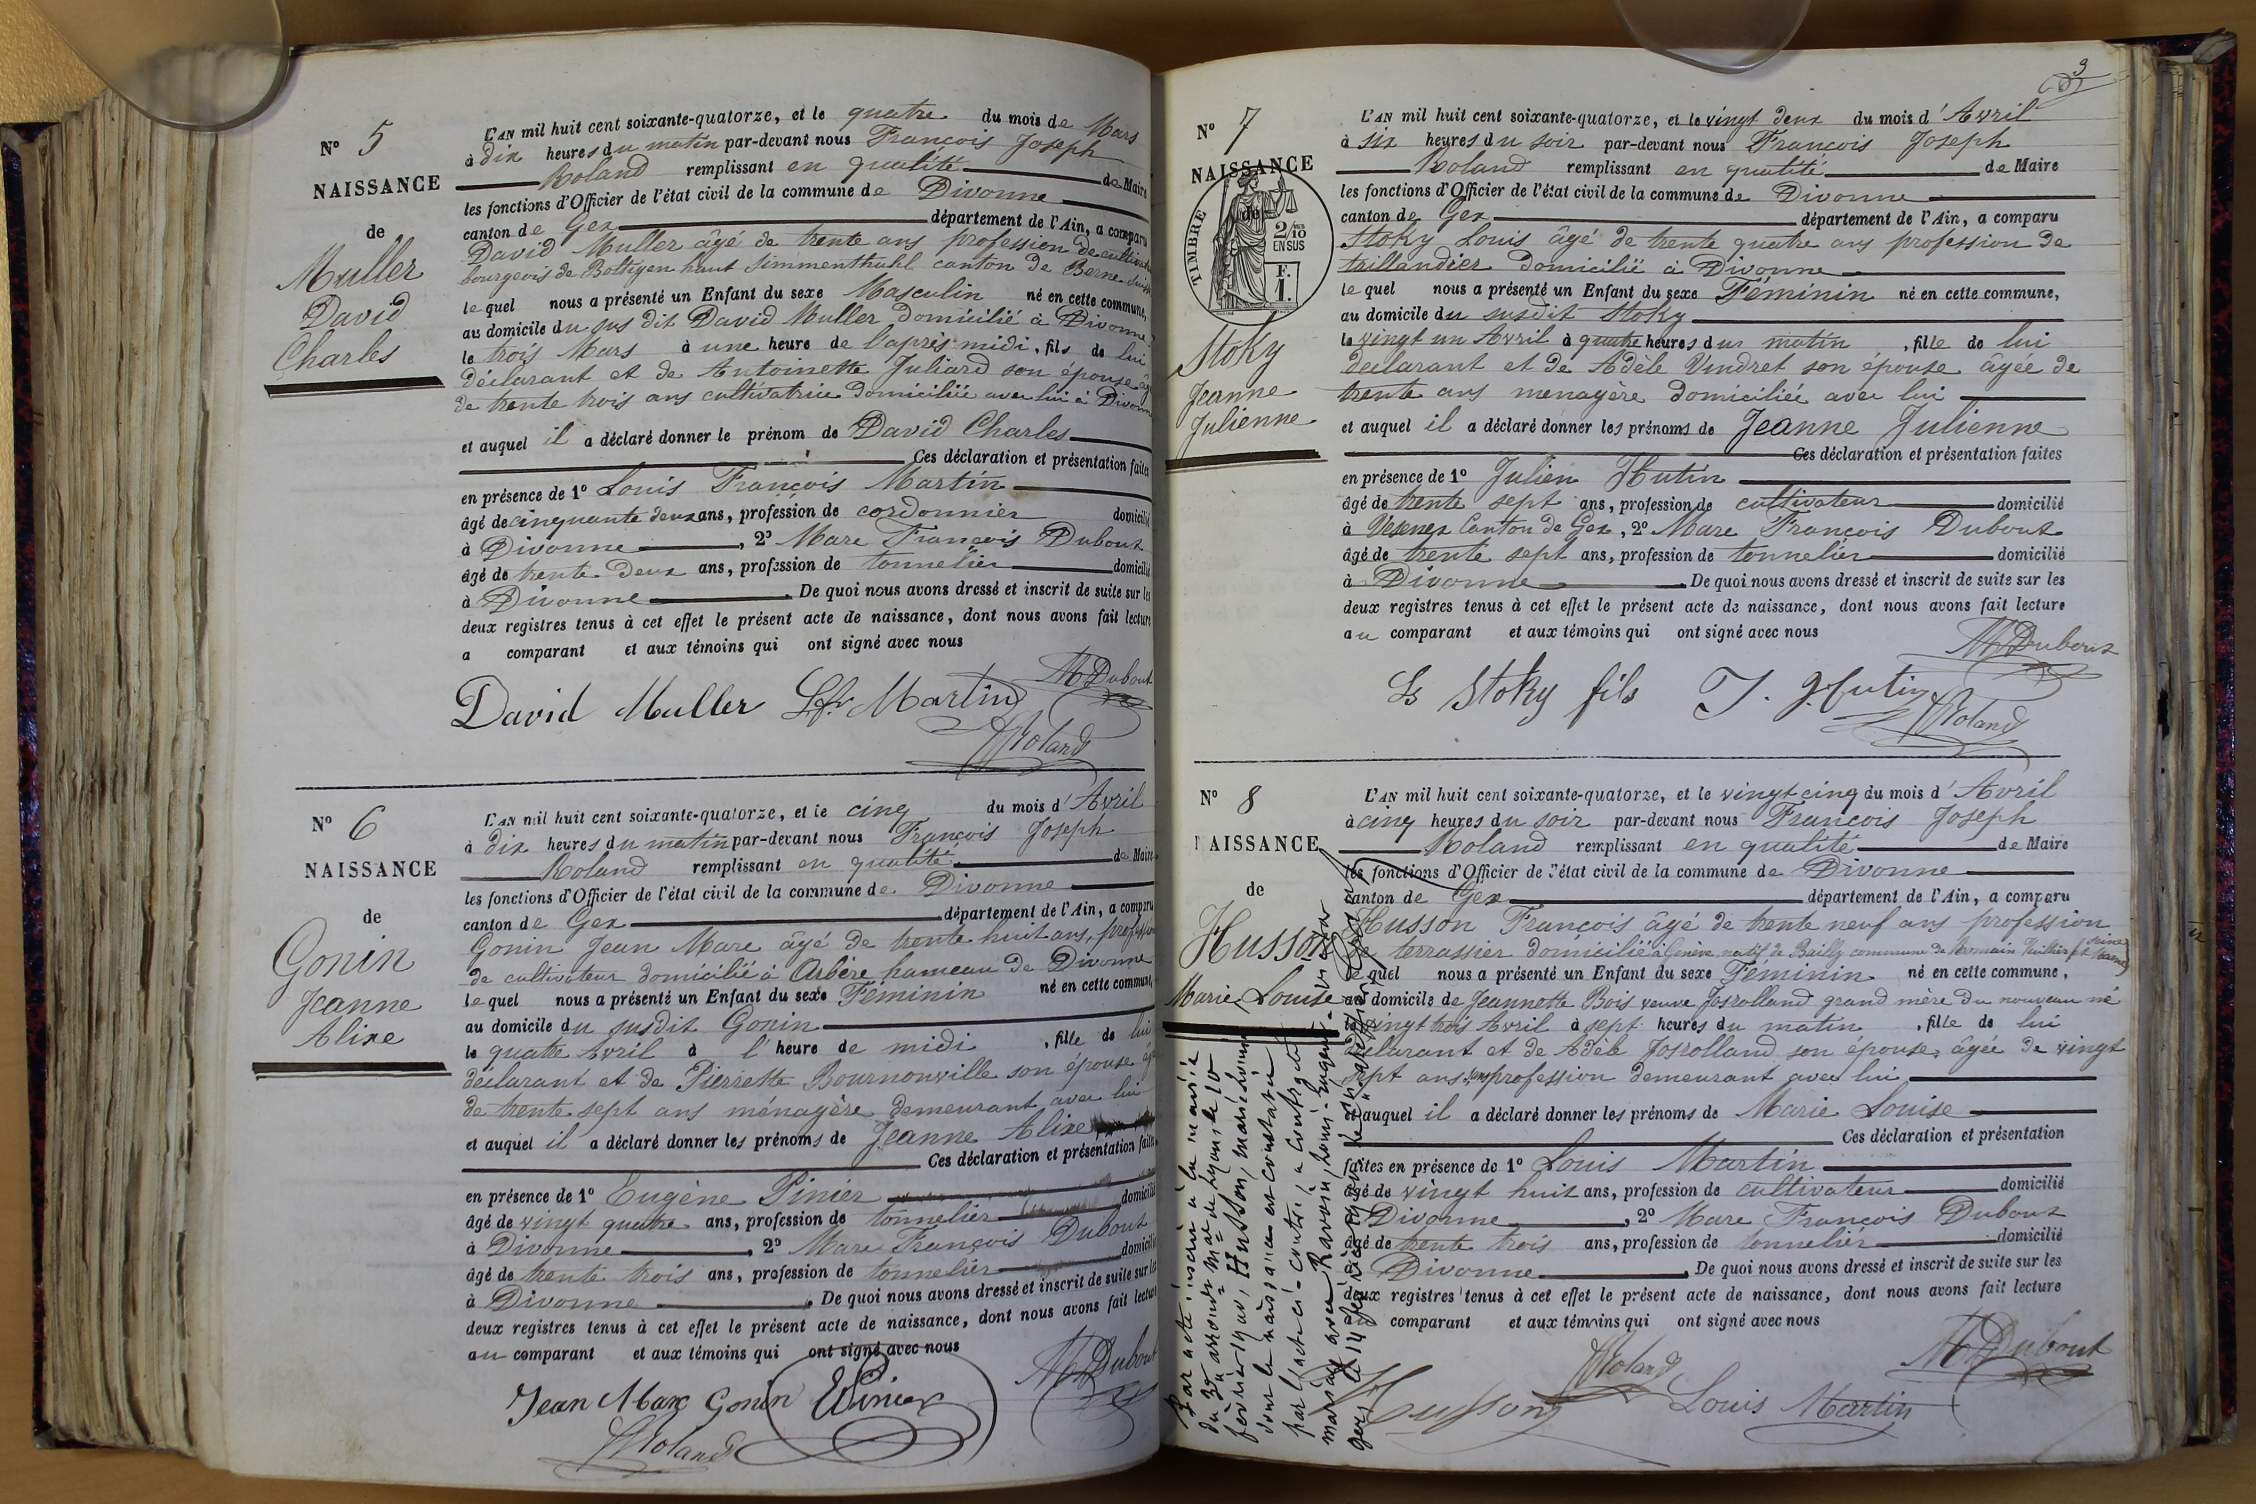 N° 5
NAISSANCE
de
Muller
David
Charles
L'AN mil huit cent soixante-quatorze, et le quatre du mois de Mars
à dix heures du matin par-devant nous François Joseph
Roland remplissant en qualité de Maire
les fonctions d'Officier de l'état civil de la commune de Divonne
canton de Gex département de l'Ain, a comparu
David Muller âgé de trente ans profession de cultivateur
bourgeois de Boltigen haut Simmenthuhl canton de Berne Suisse
le quel nous a présenté un Enfant du sexe Masculin né en cette commune,
au domicile du sus dit David Muller domicilié à Divonne
le trois Mars à une heure de l'après midi, fils de lui
déclarant et de Antoinette Juliard son épouse âgée
de trente trois ans cultivatrice domiciliée avec lui à Divonne
et auquel il a déclaré donner le prénom de David Charles
Ces déclaration et présentation faites
en présence de 1° Louis François Martin
âgé de cinquante deux ans, profession de cordonnier domicilié
à Divonne, 2° Marc François Dubout
âgé de trente deux ans, profession de tonnelier domicilié
à Divonne. De quoi nous avons dressé et inscrit de suite sur les
deux registres tenus à cet effet le présent acte de naissance, dont nous avons fait lecture
a comparant et aux témoins qui ont signé avec nous
MDubout
David Muller L. fs. Martin
Roland
N° 6
NAISSANCE
de
Gonin
Jeanne
Alixe
L'AN mil huit cent soixante-quatorze, et le cinq du mois d'Avril
à dix heures du matin par-devant nous François Joseph
Roland remplissant en qualité de Maire
les fonctions d'Officier de l'état civil de la commune de Divonne
canton de Gex département de l'Ain, a comparu
Gonin Jean Marc âgé de trente huit ans, profession
de cultivateur domicilié à Arbère hameau de Divonne
le quel nous a présenté un Enfant du sexe Féminin né en cette commune,
au domicile du susdit Gonin
le quatre Avril à l'heure de midi, fille de lui
déclarant et de Pierrette Bournonville son épouse âgée
de trente sept ans ménagère demeurant avec lui
et auquel il a déclaré donner les prénoms de Jeanne Alixe
Ces déclaration et présentation faites
en présence de 1° Eugène Pinier
âgé de vingt quatre ans, profession de tonnelier domicilié
à Divonne, 2° Marc François Dubout
âgé de trente trois ans, profession de tonnelier domicilié
à Divonne. De quoi nous avons dressé et inscrit de suite sur les
deux registres tenus à cet effet le présent acte de naissance, dont nous avons fait lecture
au comparant et aux témoins qui ont signé avec nous
MDubout
Jean Marc Gonin EPinier
Roland
3
N° 7
NAISSANCE
de
TIMBRE
2/10 EN SUS
F. 1.
Stoky
Jeanne
Julienne
L'AN mil huit cent soixante-quatorze, et le vingt deux du mois d'Avril
à six heures du soir par-devant nous François Joseph
Roland remplissant en qualité de Maire
les fonctions d'Officier de l'état civil de la commune de Divonne
canton de Gex département de l'Ain, a comparu
Stoky Louis âgé de trente quatre ans profession de
taillandier domicilié à Divonne
le quel nous a présenté un Enfant du sexe Féminin né en cette commune,
au domicile du susdit Stoky
le vingt un Avril à quatre heures du matin, fille de lui
déclarant et de Adèle Vindret son épouse âgée de
trente ans menagère domiciliée avec lui
et auquel il a déclaré donner les prénoms de Jeanne Julienne
Ces déclaration et présentation faites
en présence de 1° Julien Hutin
âgé de trente sept ans, profession de cultivateur domicilié
à Vesenex Canton de Gex, 2° Marc François Dubout
âgé de trente sept ans, profession de tonnelier domicilié
à Divonne. De quoi nous avons dressé et inscrit de suite sur les
deux registres tenus à cet effet le présent acte de naissance, dont nous avons fait lecture
au comparant et aux témoins qui ont signé avec nous
MDubout
Ls Stoky fils J. Hutin
Roland
N° 8
NAISSANCE
de
Husson
Marie Louise
L'AN mil huit cent soixante-quatorze, et le vingt cinq du mois d'Avril
à cinq heures du soir par-devant nous François Joseph
Roland remplissant en qualité de Maire
les fonctions d'Officier de l'état civil de la commune de Divonne
canton de Gex département de l'Ain, a comparu
Husson François âgé de trente neuf ans profession
terrassier domicilié à Genève natif de Bailly commune de
le quel nous a présenté un Enfant du sexe Féminin né en cette commune,
au domicile de Jeannette Bois veuve Josrolland grand mère du nouveau né
le vingt trois Avril à sept heures du matin, fille de lui
déclarant et de Adèle Josrolland son épouse, âgée de vingt
sept ans, sans profession demeurant avec lui
et auquel il a déclaré donner les prénoms de Marie Louise
Ces déclaration et présentation
faites en présence de 1° Louis Martin
âgé de vingt huit ans, profession de cultivateur domicilié
à Divonne, 2° Marc François Dubout
âgé de trente trois ans, profession de tonnelier domicilié
à Divonne. De quoi nous avons dressé et inscrit de suite sur les
deux registres tenus à cet effet le présent acte de naissance, dont nous avons fait lecture
comparant et aux témoins qui ont signé avec nous
Roland MDubout
Husson Louis Martin
Par acte inscrit à la mairie
du 3e arrondt de Lyon, le 10
février, Husson, Marie Louise
dont la naissance est constatée
par l'acte ci-contre, a contracté
mariage avec Ravoin, Louis-Eugène-Victor
Gex, le 14 février